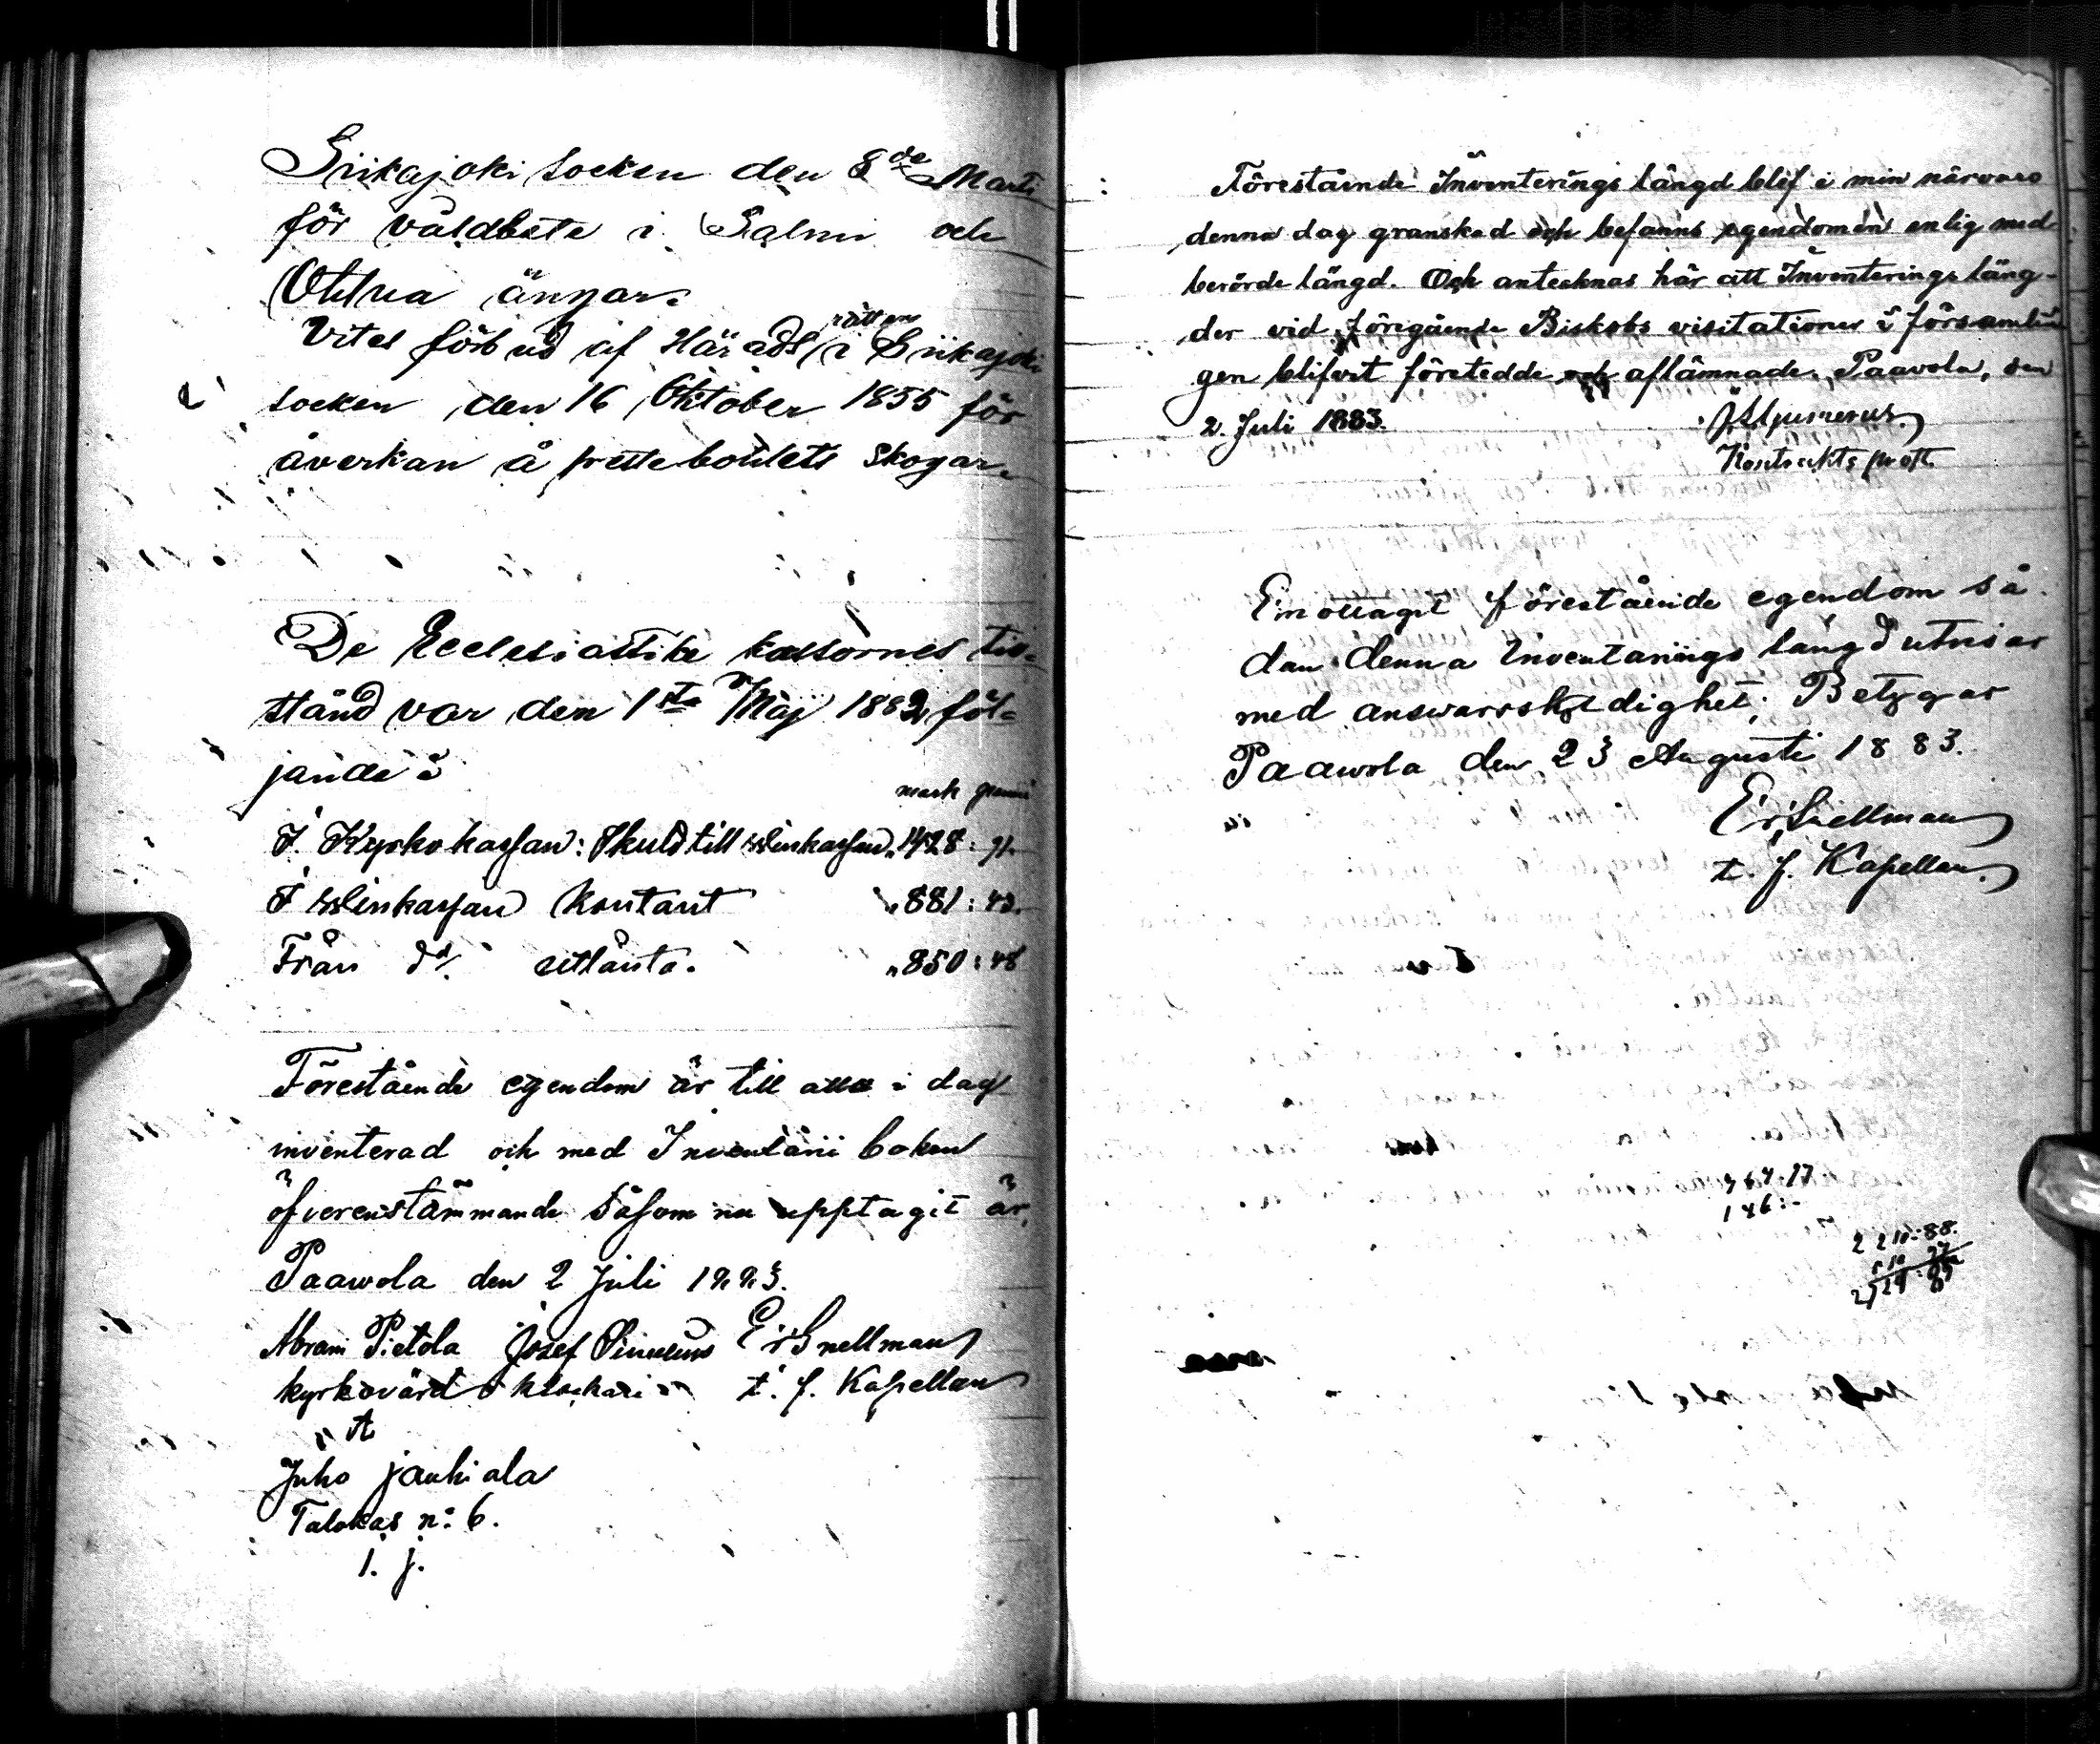 Siikajoki socken den 8de Marti
för våldbete i Salmi och
Ohtua ängar.
Vites förbud af Härads rättens i Siikajoki
socken den 16 Oktober 1855 för
åverkan å prestebolets skogar.
De Ecclesiastike kassornes till-
stånd var den 1sta Maj 1882 föl-
jande:
mark penni
I Kyrkokassan: Skuld till Winkassan „1428: 91.
I Winkassan Kontant „881: 43.
Från d:o utlånta. „850: 48
Förestående egendom är till alla i dag
inventerad och med Inventarii boken
öfverensstämmande såsom nu upptagit är,
Paawola den 2 Juli 1883.
Abram Pietola Josef Er. Snellman
kyrkovärd klockari t. f. Kapellan
Juho Jauhiala
Talokas n: 6.
J. J.
Förestående Inventerings längd blef i min närvaro
denna dag granskad och befanns egendomen enlig med
berörde längd. Och antecknas här att Inventerings läng-
der vid föregående Biskops visitationer i församlin-
gen blifvit företedde och aflämnade. Paavola, den
2. Juli 1883.
Kontrakts prost.
Emottagit förestående egendom så-
dan denna Inventarings längd utvisar
med answarsskyldighet; Betygar
Paawola den 23 Augusti 1883.
Er. Snellman
t. f. Kapellan.
146:-
2 210:88.